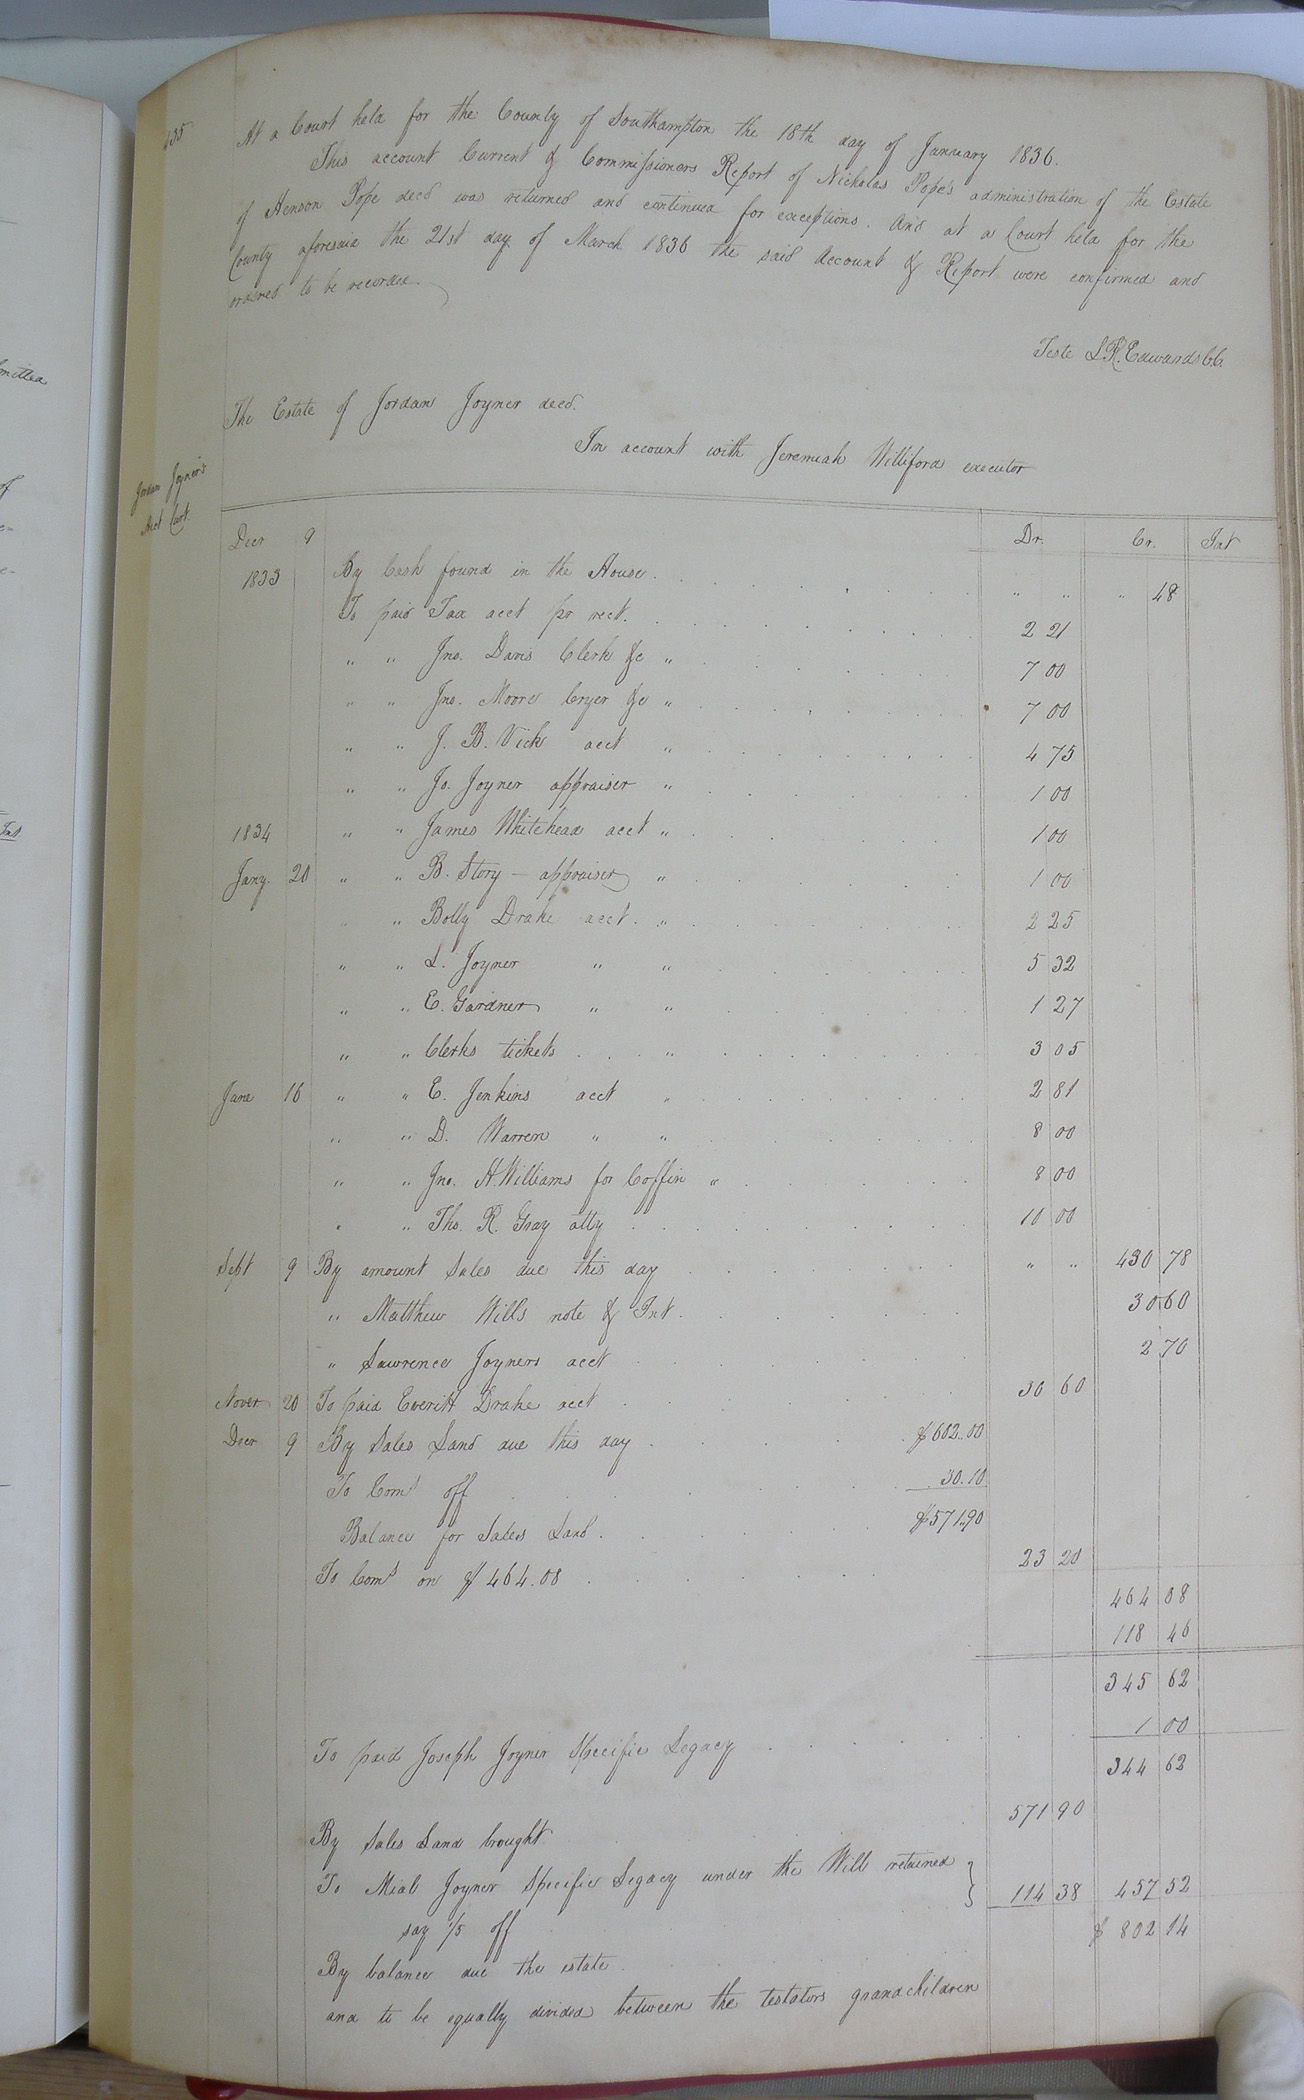 435
At a Court held for the County of Southampton the 18th day of January 1836.
This account Current & Commissioners Report of Nicholas Pope's administration of the Estate
of Henson Pope decd was returned and continued for exceptions. And at a Court held for the
County aforesaid the 21st day of March 1836 the said Account & Report were confirmed and
ordered to be recorded.
Teste L.R. Edwards CC.
The Estate of Jordan Joyner decd.
In account with Jeremiah Williford executor
Jordan Joyner's
Acct Curt.
Decr 9 Dr. Cr. Int
1833 By Cash found in the House . . . " " " 48
To paid Tax acct pr rect. . . . 2 21
" " Jno. Davis Clerk &c " . . . 7 00
" " Jno. Moore Cryer &c " . . . 7 00
" " J. B. Vick acct " . . . 4 75
" " Jo. Joyner appraiser " . . . 1 00
1834 " " James Whitehead acct " . . . 1 00
Jany. 20 " " B. Story – appraiser " . . . 1 00
" " Bolly Drake acct. " . . . 2 25
" " L. Joyner " " . . . 5 32
" " E. Gardner " " . . . 1 27
" " Clerks tickets . . . " . . . 3 05
June 16 " " E. Jenkins acct " . . . 2 81
" " D. Warren " " . . . 8 00
" " Jno. H. Williams for Coffin " . . . 8 00
" " Tho. R. Gray atty . . . 10 00
Sept 9 By amount Sales due this day . . . " " 430 78
" Matthew Wills note & Int. . . . 30 60
" Lawrence Joyners acct . . . 2 70
Novr 20 To paid Everitt Drake acct . . . 30 60
Decr 9 By Sales Land due this day . . . $602.00
To Coms off . . . 30.10
Balance for Sales Land . . . $571.90
To Coms on $464.08 . . . 23 20
464 08
118 46
345 62
1 00
To paid Joseph Joyner Specific Legacy . . . 344 62
By Sales Land brought . . . 571 90
To Mial Joyner Specific Legacy under the Will retained }
say 1/5 off 114 38 457 52
By balance due the estate . . . $ 802 14
and to be equally divided between the testators grandchildren